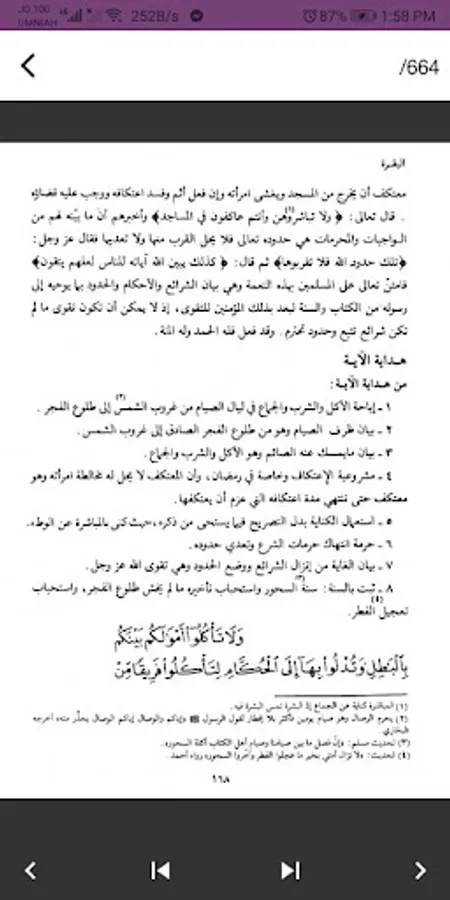 JO 100
UMNIAH
252B/s
87%
1:58 PM
/664
البقرة
معتكف أن يخرج من المسجد ويغشى امرأته وإن فعل أثم وفسد اعتكافه ووجب عليه قضاؤه
. قال تعالى: ﴿ ولا تباشروهن(١) وأنتم عاكفون في المساجد﴾ وأخبرهم أن ما بيّنه لهم من
الواجبات والمحرمات هي حدوده تعالى فلا يحل القرب منها ولا تعديها فقال عز وجل:
﴿تلك حدود الله فلا تقربوها﴾ ثم قال: ﴿ كذلك يبين الله آياته للناس لعلهم يتقون﴾
فامتنّ تعالى على المسلمين بهذه النعمة وهي بيان الشرائع والأحكام والحدود بما يوحيه إلى
رسوله من الكتاب والسنة ليعد بذلك المؤمنين للتقوى، إذ لا يمكن أن تكون تقوى ما لم
تكن شرائع تتبع وحدود تحترم . وقد فعل فله الحمد وله المنة.
هداية الآية
من هداية الآية :
١ - إباحة الأكل والشرب والجماع في ليال الصيام من غروب الشمس(٢) إلى طلوع الفجر .
٢ - بيان ظرف الصيام وهو من طلوع الفجر الصادق إلى غروب الشمس.
٣ - بيان مايمسك عنه الصائم وهو الأكل والشرب والجماع.
٤ - مشروعية الإعتكاف وخاصة في رمضان، وأن المعتكف لا يحل له مخالطة امرأته وهو
معتكف حتى تنتهي مدة اعتكافه التي عزم أن يعتكفها.
٥ - استعمال الكناية بدل التصريح فيما يستحى من ذكره، حيث كنى بالمباشرة عن الوطء.
٦ - حرمة انتهاك حرمات الشرع وتعدي حدوده.
٧ - بيان الغاية من إنزال الشرائع ووضع الحدود وهي تقوى الله عز وجل.
٨ - ثبت بالسنة: سنة(٣) السحور واستحباب تأخيره ما لم يخش طلوع الفجر، واستحباب
تعجيل(٤) الفطر.
وَلَا تَأْكُلُوٓا۟ أَمْوَٰلَكُم بَيْنَكُم
بِٱلْبَٰطِلِ وَتُدْلُوا۟ بِهَآ إِلَى ٱلْحُكَّامِ لِتَأْكُلُوا۟ فَرِيقًا مِّنْ
(١) المباشرة كناية عن الجماع إذ البشرة تمس البشرة فيه.
(٢) يحرم الوصال وهو صيام يومين فأكثر بلا إفطار لقول الرسول ﷺ «إياكم والوصال إياكم الوصال يحذّر منه» أخرجه
البخاري.
(٣) لحديث مسلم: «إن فصل ما بين صيامنا وصيام أهل الكتاب أكلة السحور».
(٤) لحديث: «لا تزال أمتي بخير ما عجلوا الفطر وأخروا السحور» رواه أحمد.
١٦٨